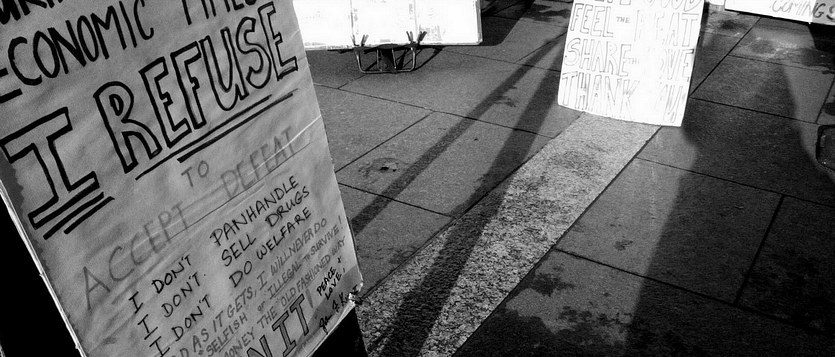 ECONOMIC
I REFUSE
TO
ACCEPT DEFEAT
I DON'T PANHANDLE
I DON'T SELL DRUGS
I DON'T DO WELFARE
AS IT GETS, I WILL NEVER DO
SELFISH or ILLEGAL TO SURVIVE!
MONEY THE OLD FASHIONED WAY
N IT!
PEACE +
LOVE
FEEL THE HEAT
SHARE THE LOVE
THANK YOU
COMING